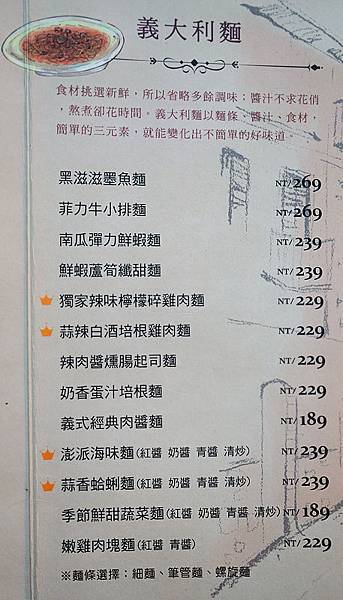 義大利麵
食材挑選新鮮，所以省略多餘調味；醬汁不求花俏
，熬煮卻花時間。義大利麵以麵條、醬汁、食材，
簡單的三元素，就能變化出不簡單的好味道。
黑滋滋墨魚麵 NT/269
菲力牛小排麵 NT/269
南瓜彈力鮮蝦麵 NT/239
鮮蝦蘆筍纖甜麵 NT/239
獨家辣味檸檬碎雞肉麵 NT/229
蒜辣白酒培根雞肉麵 NT/229
辣肉醬燻腸起司麵 NT/229
奶香蛋汁培根麵 NT/229
義式經典肉醬麵 NT/189
澎派海味麵(紅醬 奶醬 青醬 清炒) NT/239
蒜香蛤蜊麵(紅醬 奶醬 青醬 清炒) NT/239
季節鮮甜蔬菜麵(紅醬 奶醬 青醬 清炒) NT/189
嫩雞肉塊麵(紅醬 青醬) NT/229
※麵條選擇：細麵、筆管麵、螺旋麵